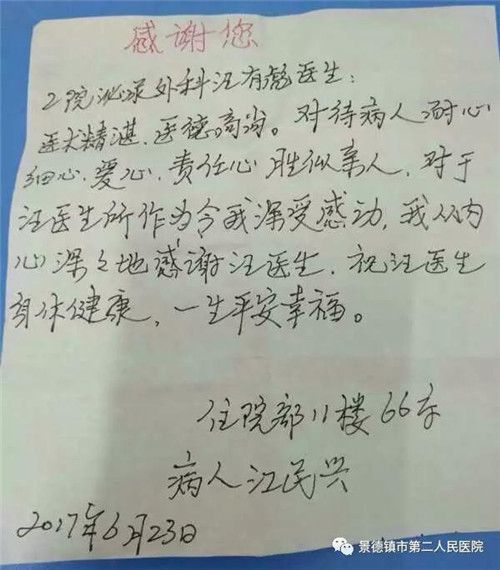 感谢您
2院泌尿外科汪有彪医生：
医术精湛，医德高尚。对待病人耐心
细心、爱心、责任心胜似亲人，对于
汪医生所作为令我深受感动，我从内
心深々地感谢汪医生，祝汪医生
身体健康，一生平安幸福。
住院部11楼66床
病人江民兴
2017年6月23日
景德镇市第二人民医院